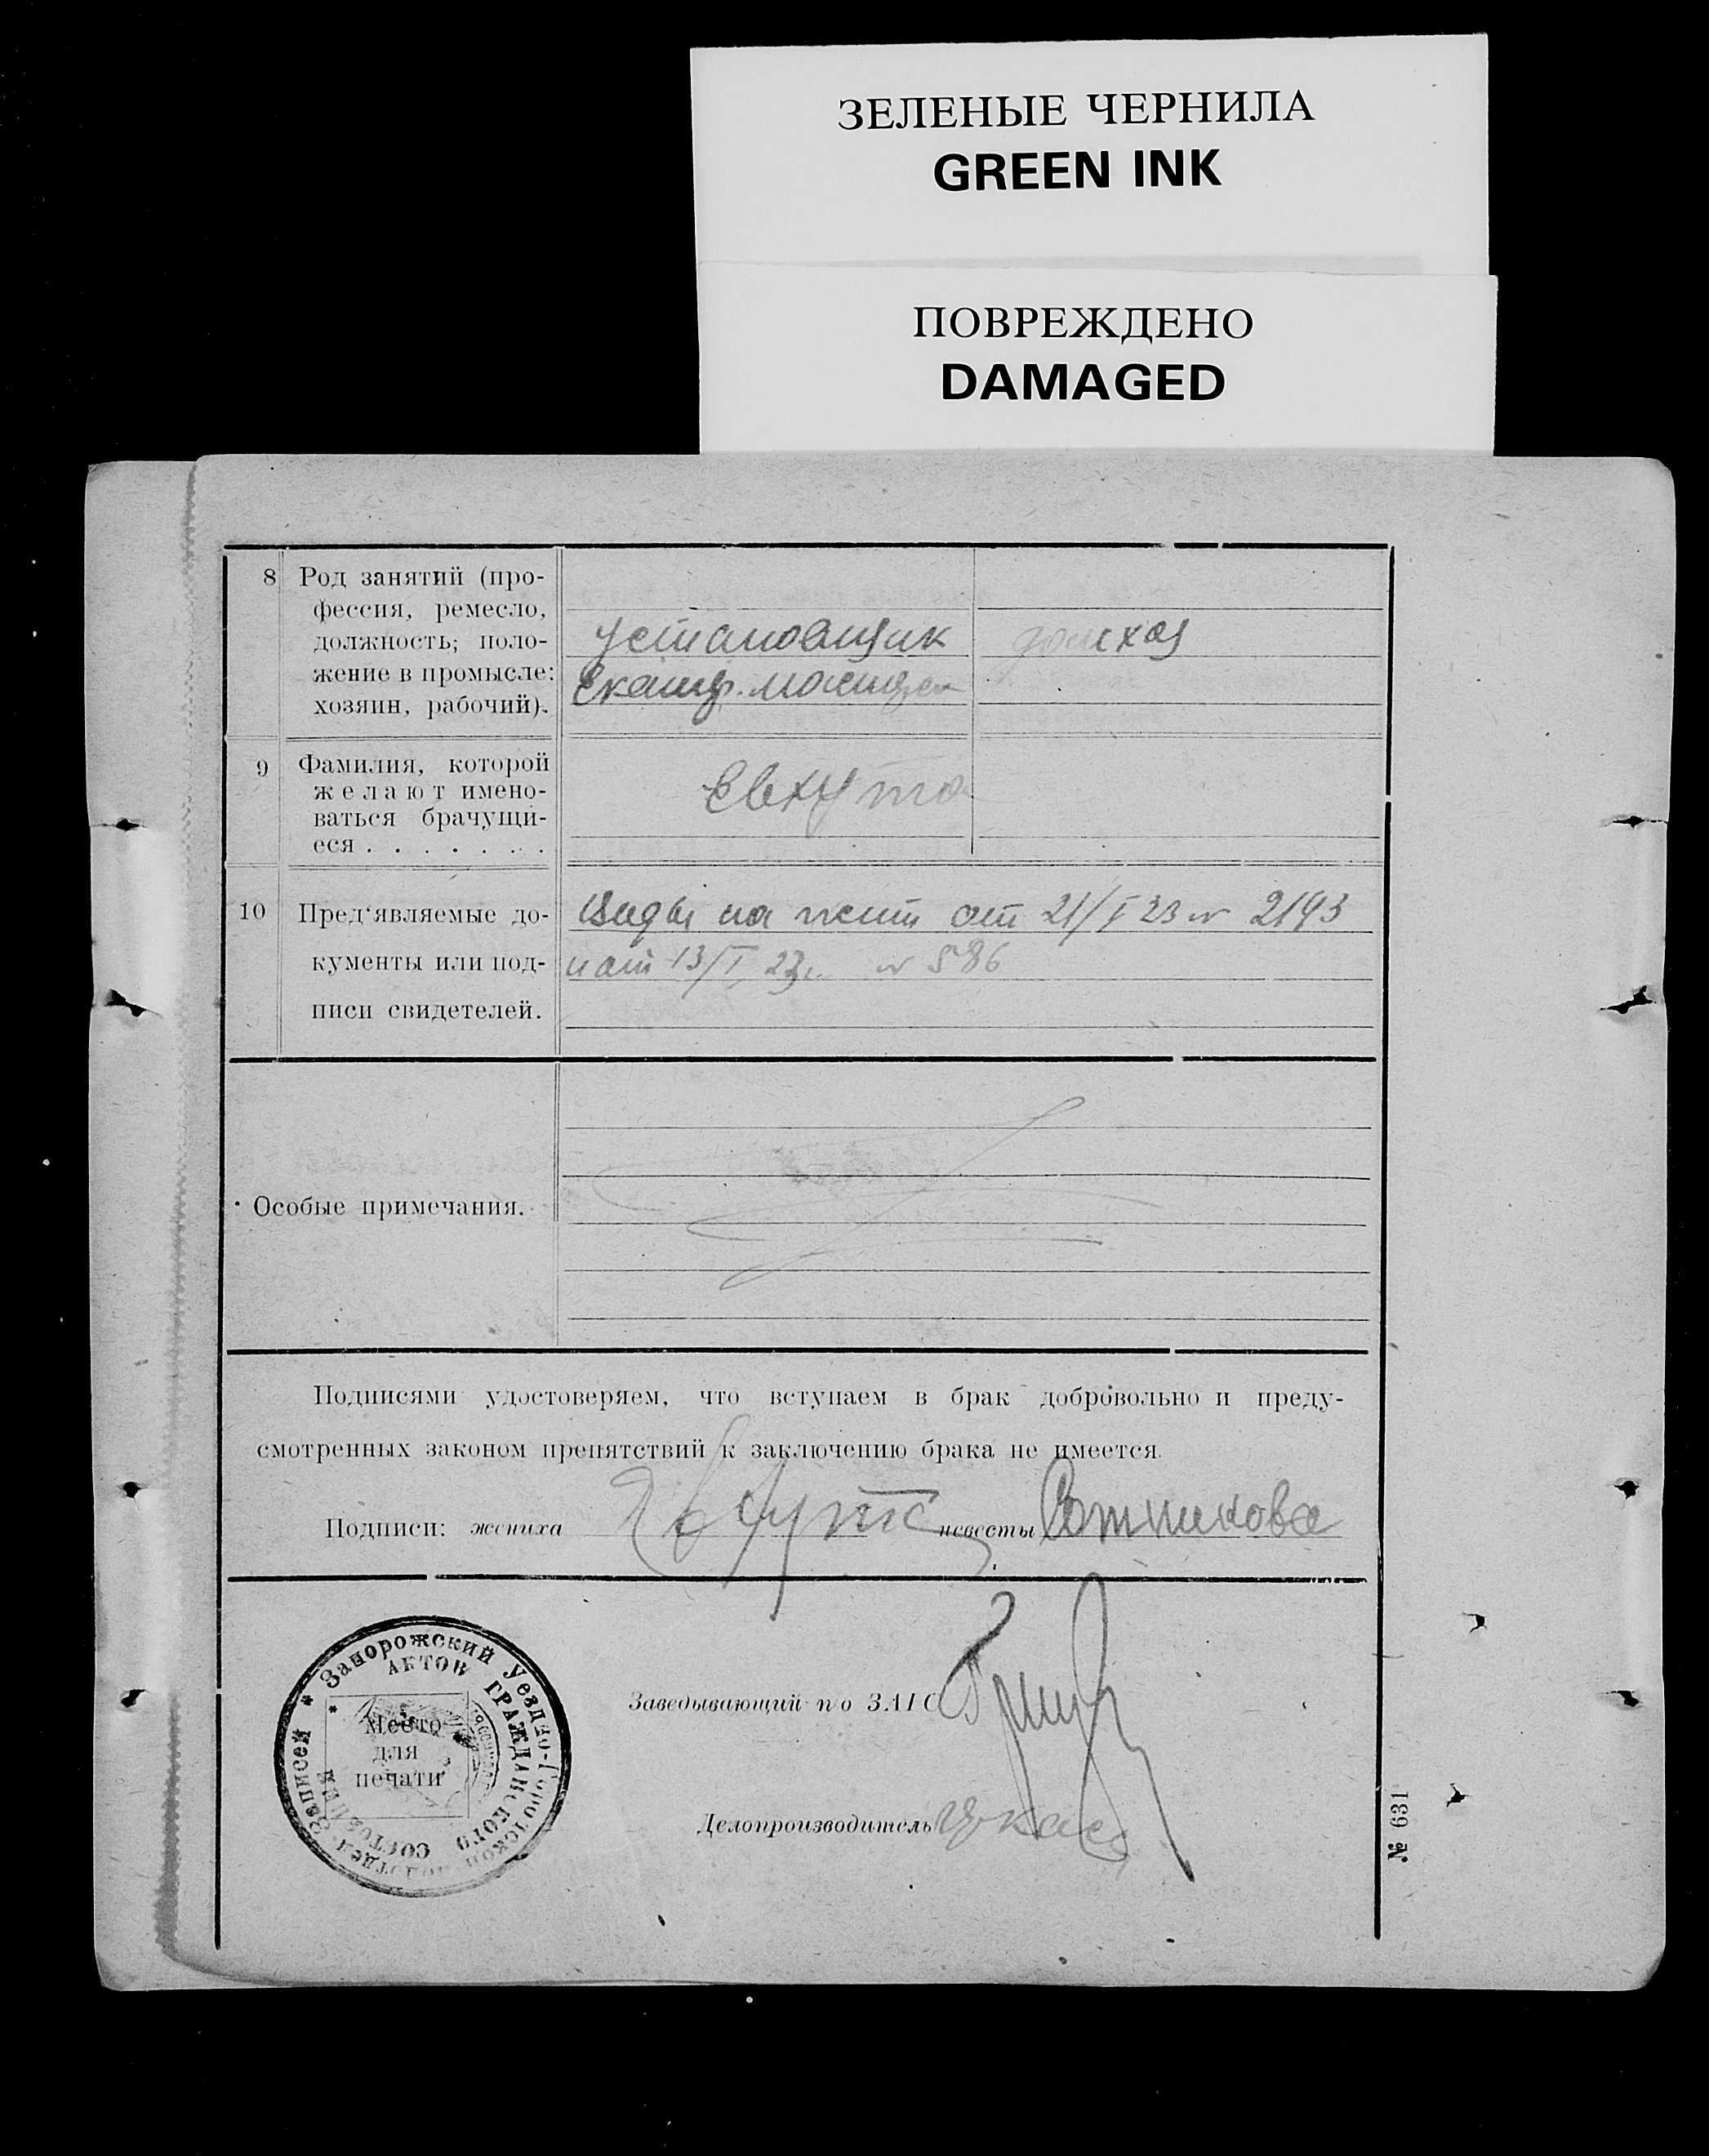 ЗЕЛЕНЫЕ ЧЕРНИЛА
GREEN INK
ПОВРЕЖДЕНО
DAMAGED
8 Род занятий (про-
фессия, ремесло,
должность; поло-
жение в промысле:
хозяин, рабочий).
установщик
Екатер.
домхоз
9 Фамилия, которой
желают имено-
ваться брачущи-
еся . . . . . . .
Евхута
10 Пред‘являемые до-
кументы или под-
писи свидетелей.
Виды на жит от 21/I 23 № 2193
и от 13/I 23г. № 586
Особые примечания.
Подписями удостоверяем, что вступаем в брак добровольно и преду-
смотренных законом препятствий к заключению брака не имеется.
Подписи: жениха Евхута невесты Сотникова
Запорожский Уездно-Городской подотдел Записей
АКТОВ ГРАЖДАНСКОГО СОСТОЯНИЯ
Место
для
печати
Заведывающий по ЗАГС
Делопроизводитель
№ 631